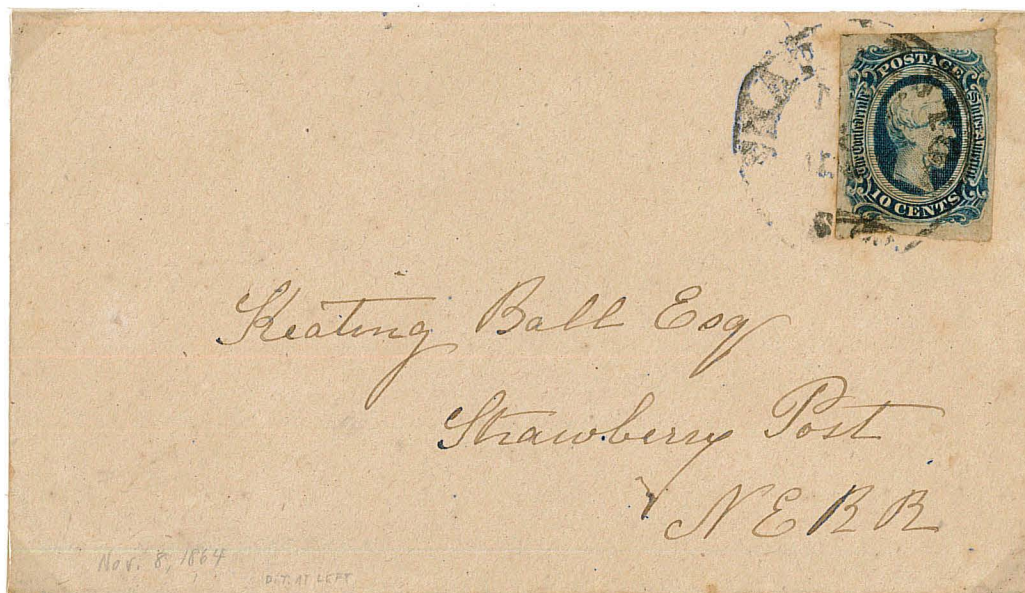 POSTAGE
The Confederate States America
10 CENTS
Keating Ball Esq
Strawberry Post
N E R R
Nov. 8, 1864
D.T. AT LEFT